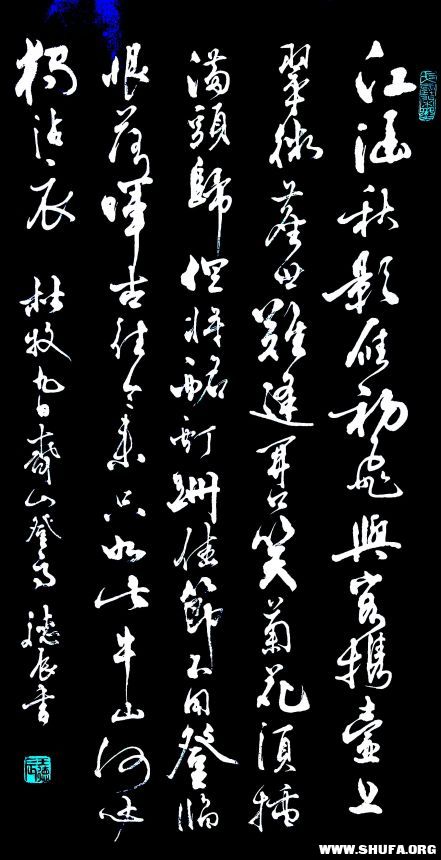 江涵秋影雁初飛與客携壺上
翠微塵世難逢開口笑菊花須插
滿頭歸但將酩酊酬佳節不用登臨
恨落暉古往今來只如此牛山何必
獨沾衣 杜牧九日齊山登高 德辰書
WWW.SHUFA.ORG